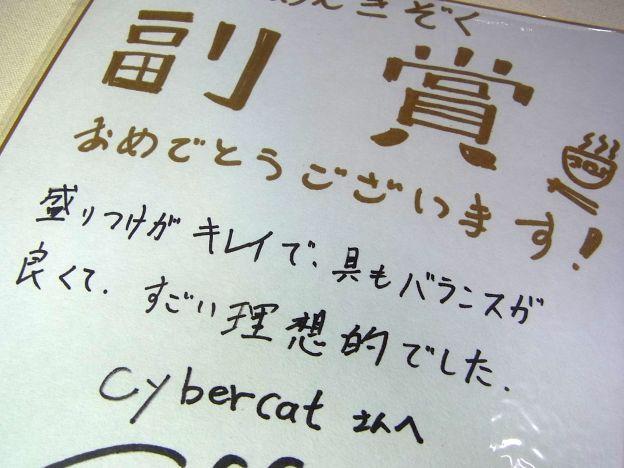 んきぞく
副賞
おめでとうございます!
盛りつけが キレイで、具もバランスが
良くて、すごい理想的でした.
cybercat さんへ